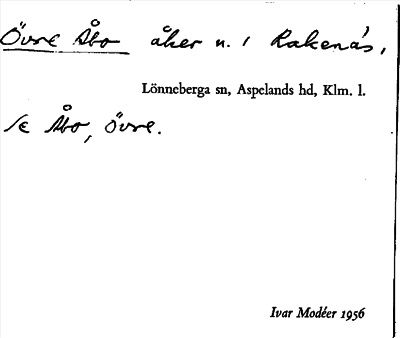 Övre Åbo åker n. 1 Rakenäs,
Lönneberga sn, Aspelands hd, Klm. l.
se Åbo, Övre.
Ivar Modéer 1956